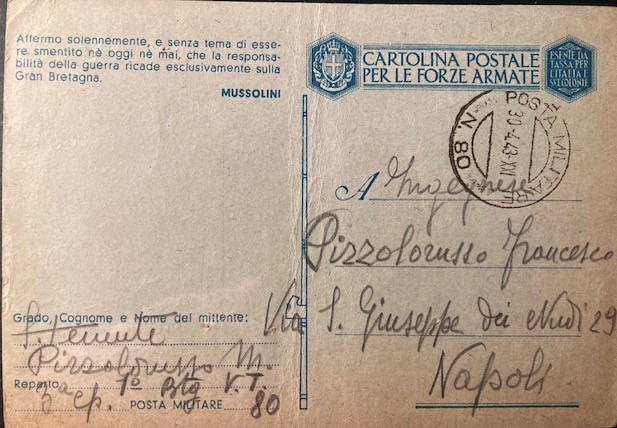 Affermo solennemente, e senza tema di esse-
re smentito nè oggi nè mai, che la responsa-
bilità della guerra ricade esclusivamente sulla
Gran Bretagna.
MUSSOLINI
CARTOLINA POSTALE
PER LE FORZE ARMATE
ESENTE DA
TASSA PER
L'ITALIA E
SUE COLONIE
POSTA MILITARE
N. 80
30.4.43.XXI
A Ingegnere
Pizzolorusso Francesco
Via S. Giuseppe dei Nudi 29
Napoli
Grado, Cognome e Nome del mittente:
S. Tenente
Pizzolorusso M.
Reparto 1º Btg V. T.
3ª cp.
POSTA MILITARE 80